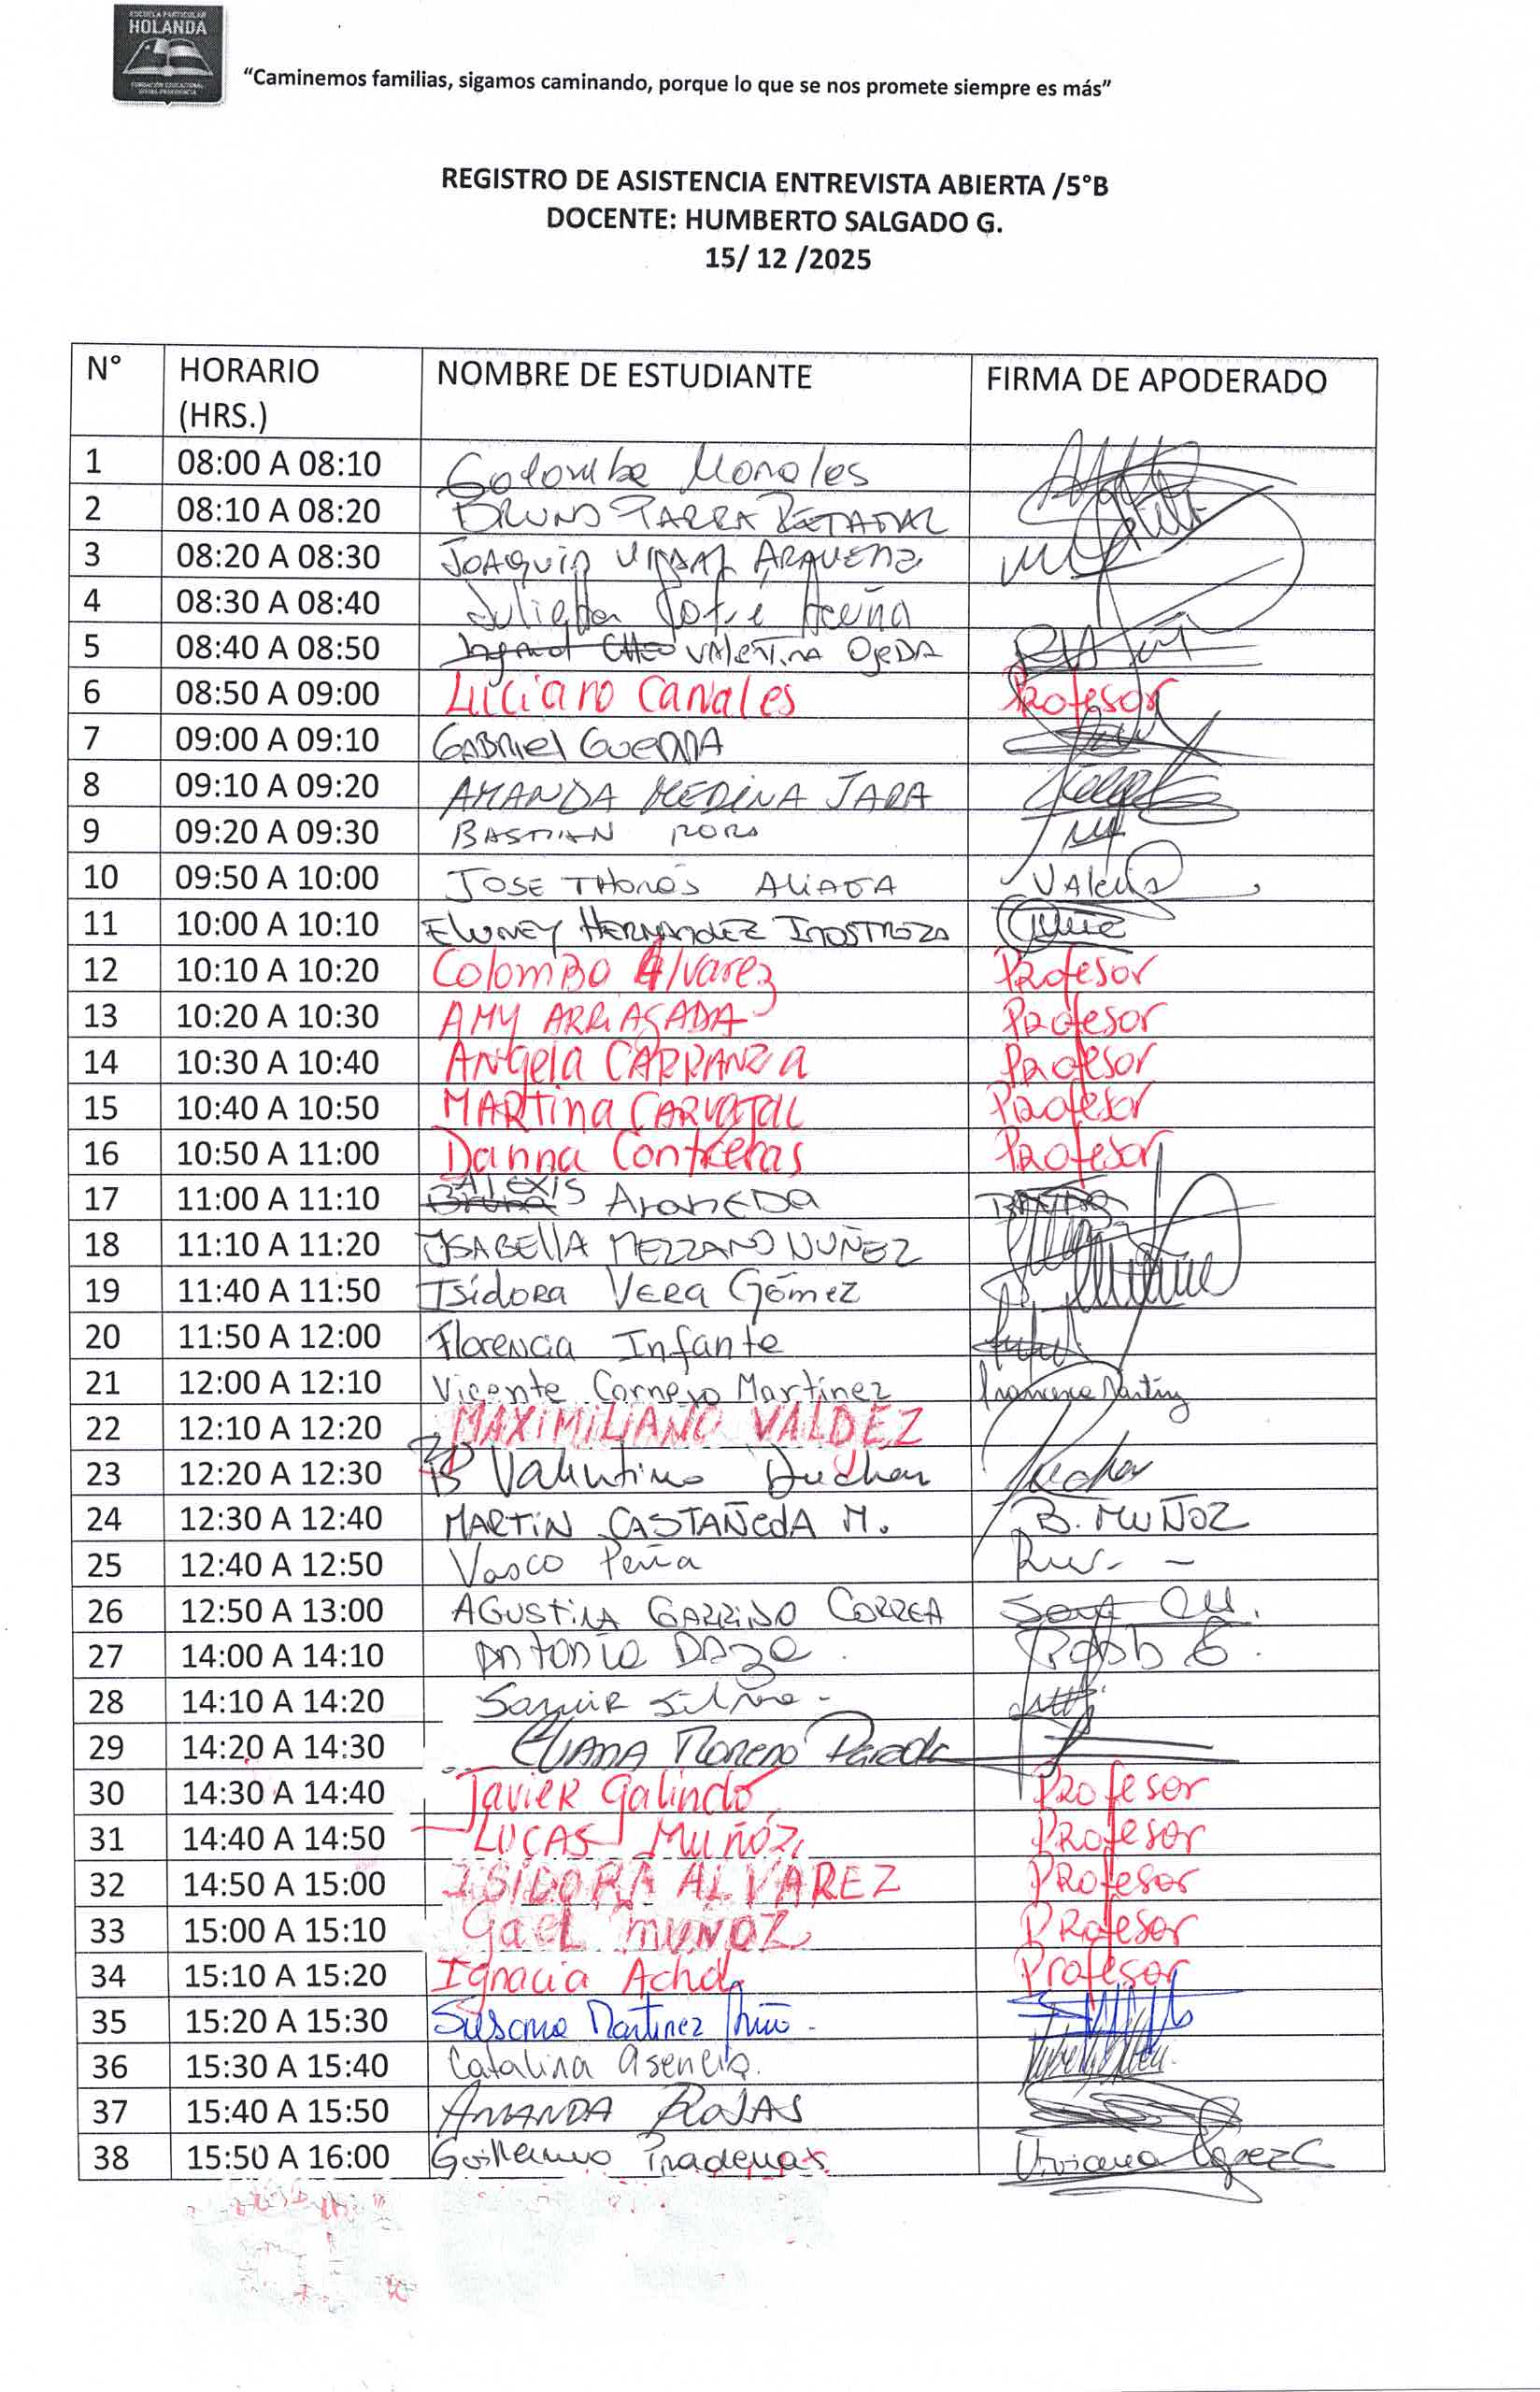 ESCUELA PARTICULAR
HOLANDA
FUNDACIÓN EDUCACIONAL
“Caminemos familias, sigamos caminando, porque lo que se nos promete siempre es más”
REGISTRO DE ASISTENCIA ENTREVISTA ABIERTA /5°B
DOCENTE: HUMBERTO SALGADO G.
15/ 12 /2025
N° HORARIO (HRS.) NOMBRE DE ESTUDIANTE FIRMA DE APODERADO
1 08:00 A 08:10 Colomba Morales
2 08:10 A 08:20 BRUNO PARRA RETAMAL
3 08:20 A 08:30 JOAQUIN VIDAL ARAVENA
4 08:30 A 08:40 Julietta Jofré Acuña
5 08:40 A 08:50 VALENTINA OJEDA
6 08:50 A 09:00 Luciano Canales Profesor
7 09:00 A 09:10 GABRIEL GUERRA
8 09:10 A 09:20 AMANDA MEDINA JARA
9 09:20 A 09:30 BASTIAN
10 09:50 A 10:00 JOSE THOMÁS ALIAGA
11 10:00 A 10:10 ELUNEY HERNANDEZ INOSTROZA
12 10:10 A 10:20 Colombo Alvarez Profesor
13 10:20 A 10:30 AMY ARRIAGADA Profesor
14 10:30 A 10:40 Angela CARRANZA Profesor
15 10:40 A 10:50 MARTina CARVAJAL Profesor
16 10:50 A 11:00 Danna Contreras Profesor
17 11:00 A 11:10 ALEXIS ARANEDA
18 11:10 A 11:20 ISABELLA MEZZANO NUÑEZ
19 11:40 A 11:50 Isidora VERA Gómez
20 11:50 A 12:00 Florencia Infante
21 12:00 A 12:10 Vicente Cornejo Martínez Francisca Martinez
22 12:10 A 12:20 MAXIMILIANO VALDEZ
23 12:20 A 12:30 Valentino
24 12:30 A 12:40 MARTIN CASTAÑEDA M. B. MUÑOZ
25 12:40 A 12:50 Vasco Peña
26 12:50 A 13:00 AGUSTINA GARRIDO CORREA
27 14:00 A 14:10 Antonia DAZA
28 14:10 A 14:20 Samir Silva
29 14:20 A 14:30 ELIANA Moreno Parada
30 14:30 A 14:40 Javier Galindo Profesor
31 14:40 A 14:50 LUCAS MUÑOZ Profesor
32 14:50 A 15:00 ISIDORA ALVAREZ Profesor
33 15:00 A 15:10 GaeL MUÑOZ Profesor
34 15:10 A 15:20 Ignacia Profesor
35 15:20 A 15:30 Susana Martinez
36 15:30 A 15:40 Catalina Asencio.
37 15:40 A 15:50 AMANDA ROJAS
38 15:50 A 16:00 Guillermo Pradenas Viviana